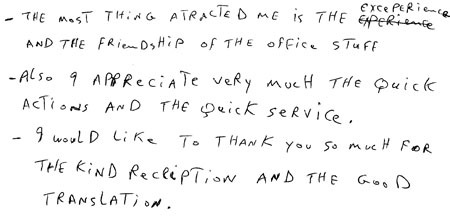 - THE MOST THING ATRACTED ME IS THE EXCEPERIENCE
AND THE FRIENDSHIP OF THE OFFICE STUFF
- ALSO I APPRECIATE VERY MUCH THE QUICK
ACTIONS AND THE QUICK SERVICE.
- I WOULD LIKE TO THANK YOU SO MUCH FOR
THE KIND RECRIPTION AND THE GOOD
TRANSLATION.